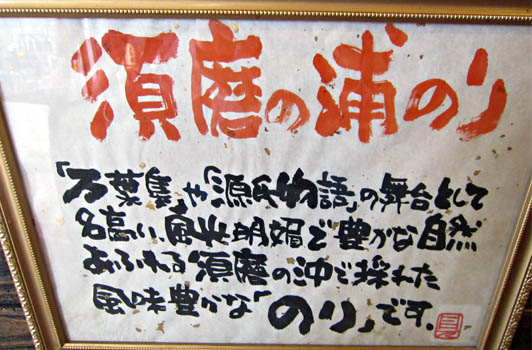 須磨の浦のり
「万葉集」や「源氏物語」の舞台として
名高い、風光明媚で豊かな自然
あふれる須磨の沖で採れた
風味豊かな「のり」です。